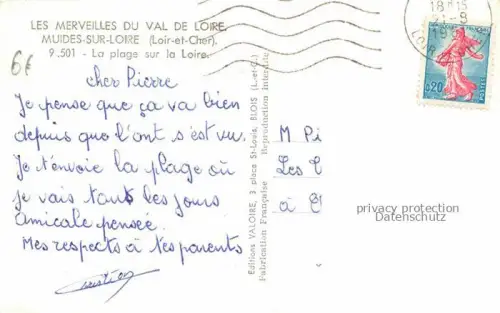 LES MERVEILLES DU VAL DE LOIRE
MUIDES-SUR-LOIRE (Loir-et-Cher).
9.501 - La plage sur la Loire.
6€
cher Pierre
Je pense que ça va bien
depuis que l'ont s'est vu.
Je t'envoie la plage où
je vais tout les jours
amicale pensée.
Mes respects à tes parents
Christian
Editions VALOIRE, 3 place St-Louis, BLOIS (L.-et-C.)
Fabrication Française Reproduction Interdite
18H15
21-8
19
LOIR
0,20
POSTES
M Pi
Les
à
privacy protection
Datenschutz